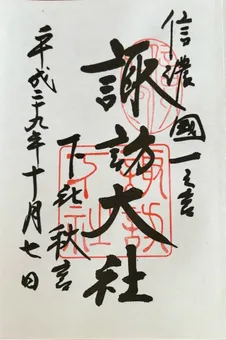 信濃國一之宮
諏訪大社
下社秋宮
平成二十九年十月七日